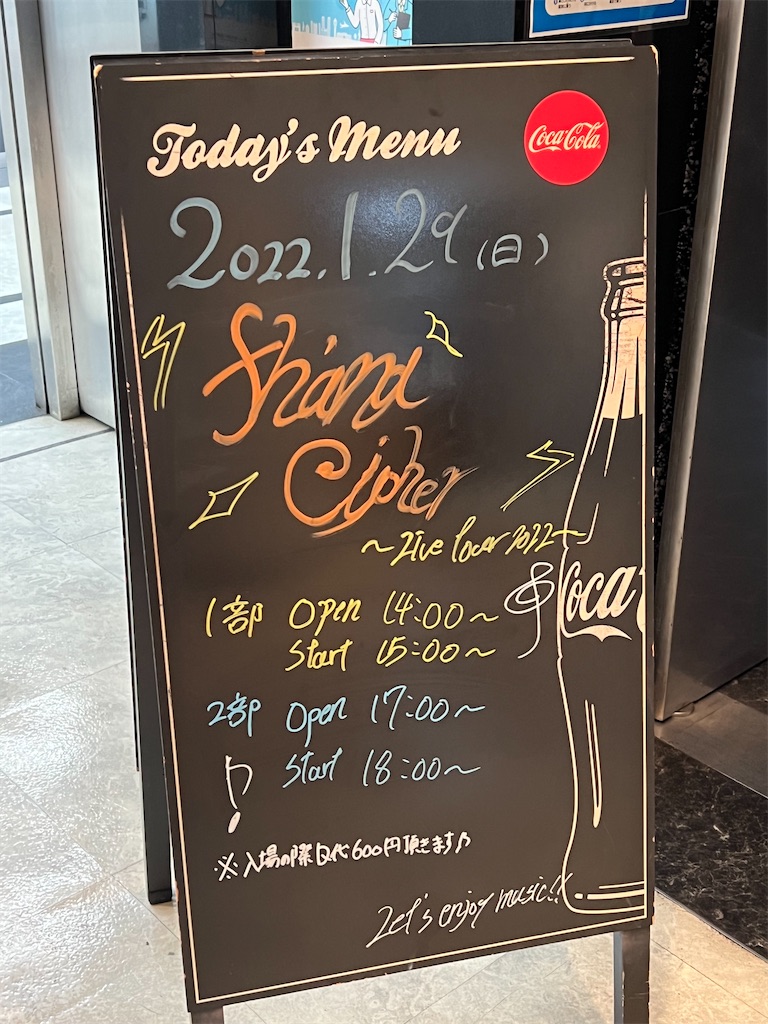 Today's Menu
Coca-Cola
2022.1.29(日)
Cipher
~Live Tour 2022~
1部 Open 14:00~
Start 15:00~
Coca
2部 Open 17:00~
Start 18:00~
※入場の際D代600円頂きます♪
Let's enjoy music!!